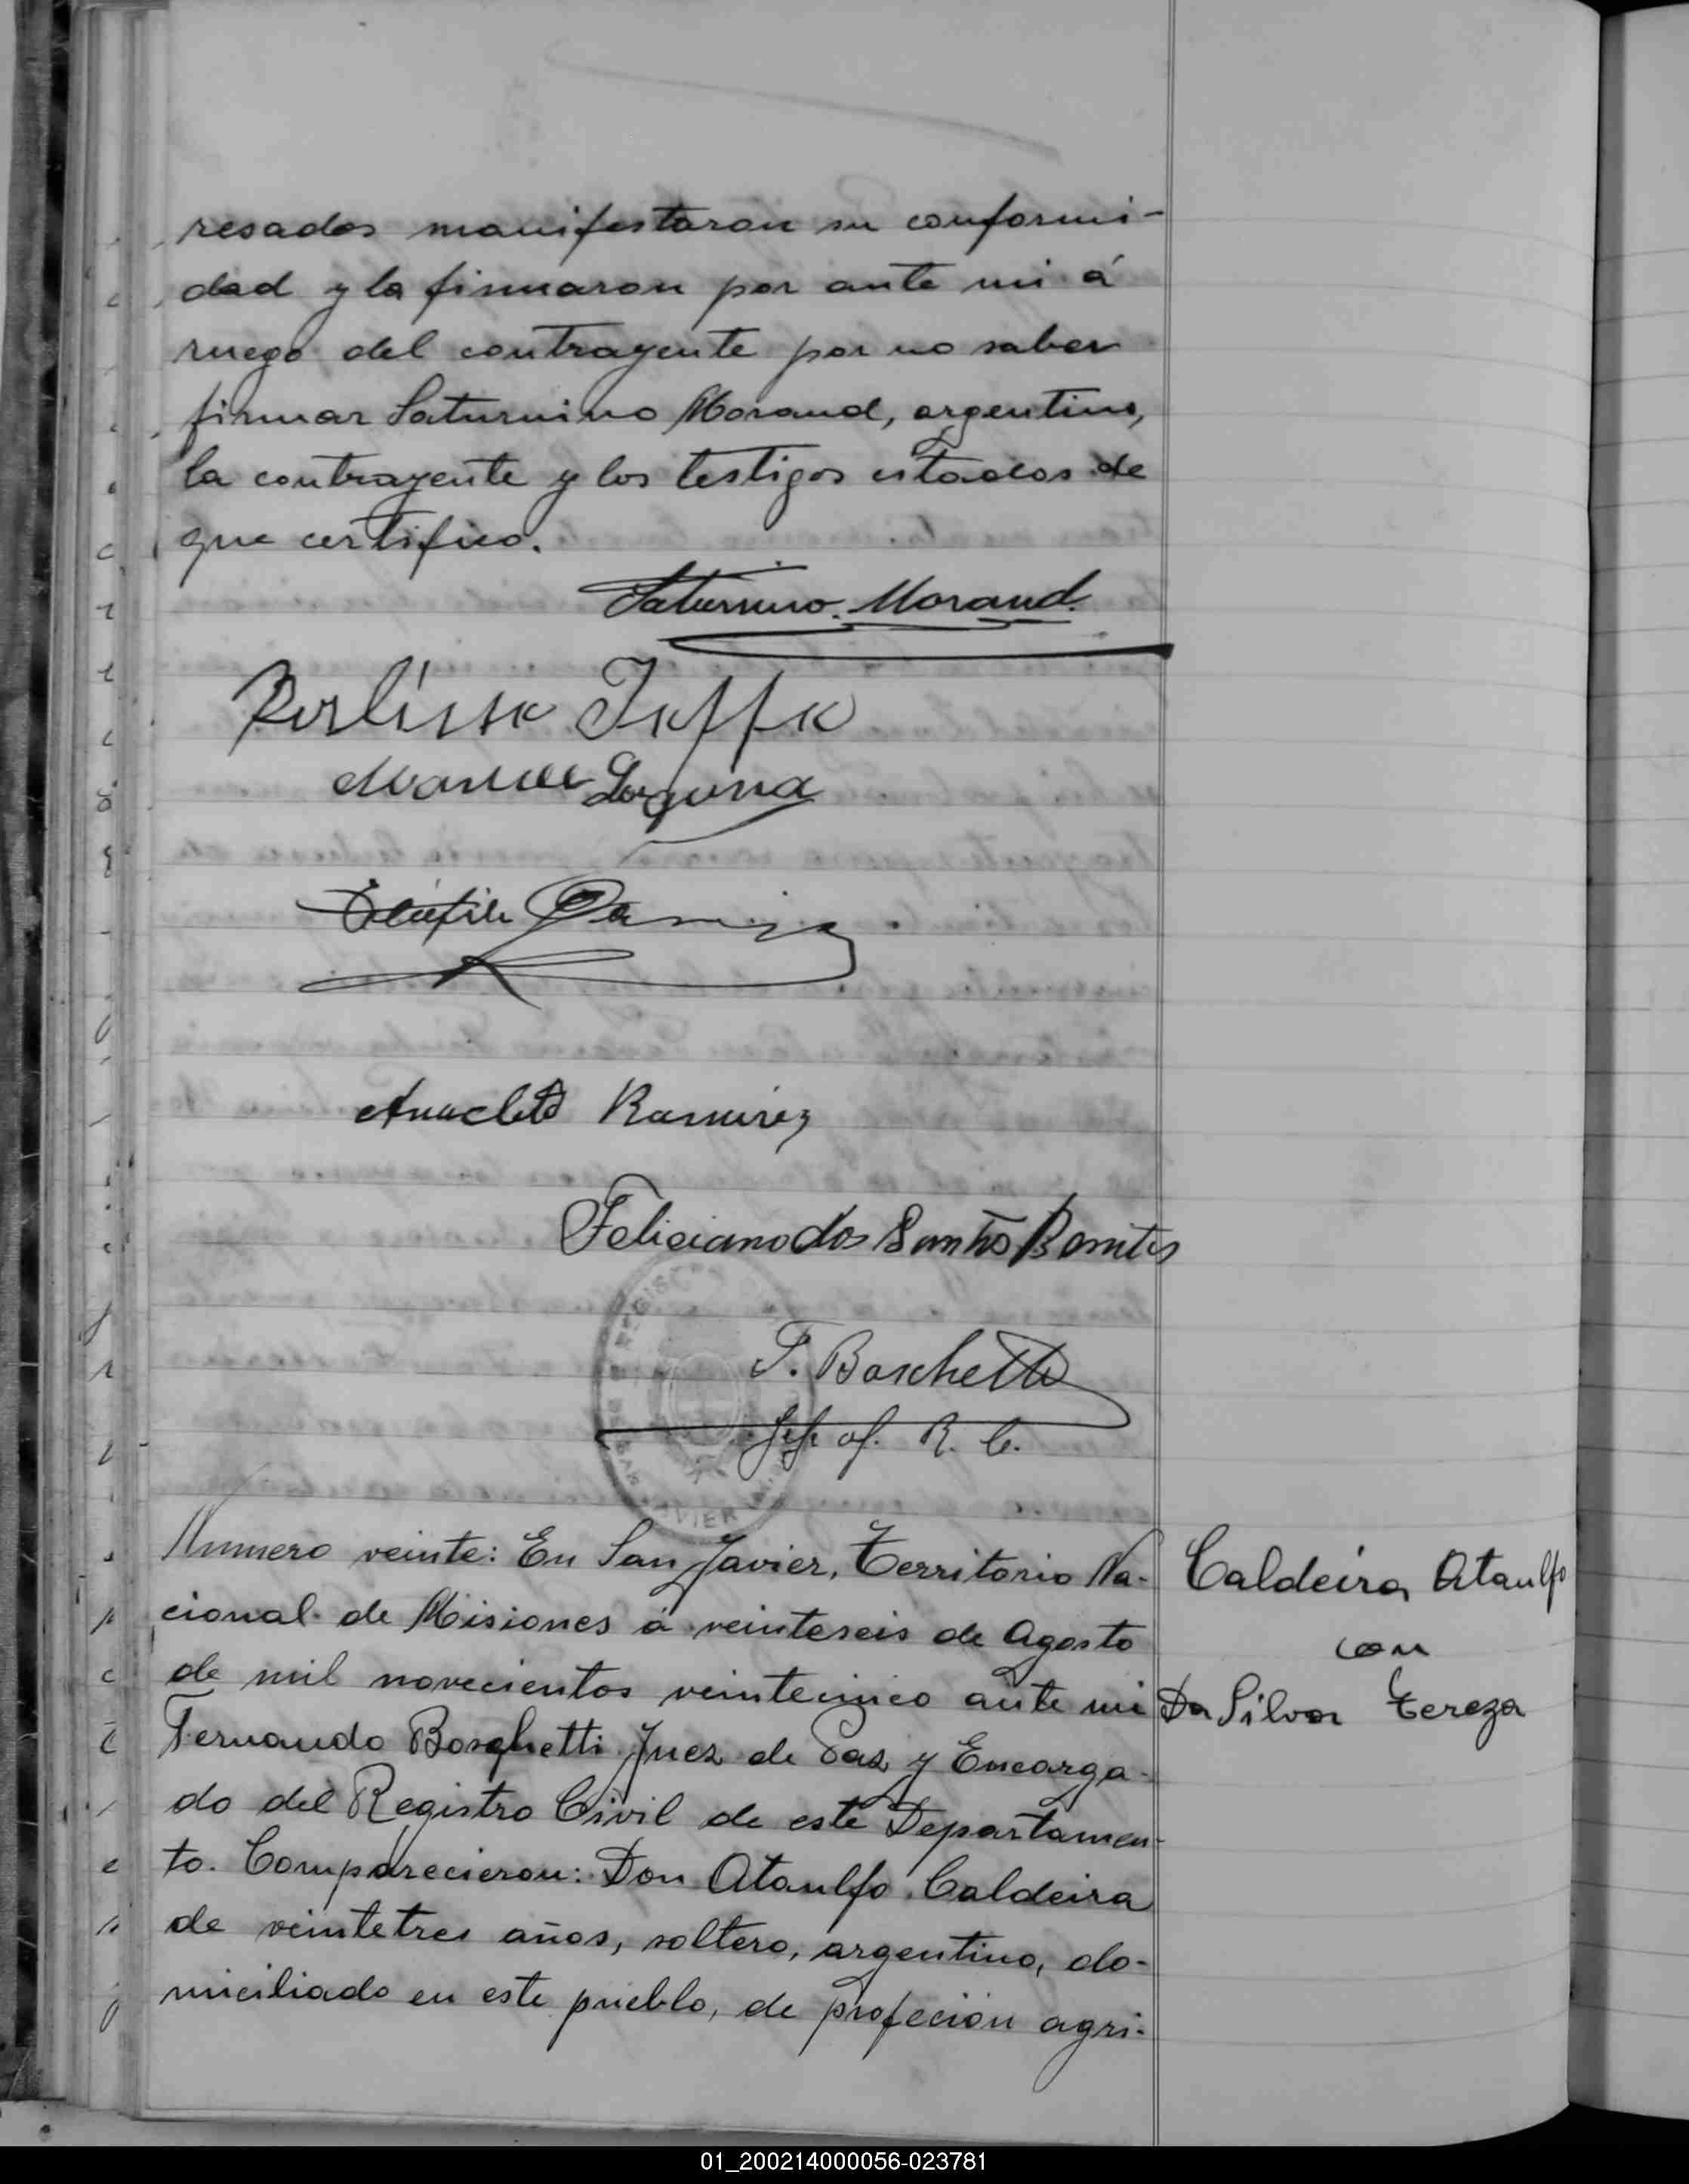 resados manifestaron su conformi-
dad y la firmaron por ante mi á
ruego del contrayente por no saber
firmar Saturnino Morand, argentino,
la contrayente y los testigos citados de
que certifico.
Saturnino Morand.
Manuel Laguna
Anacleto Ramirez
Feliciano dos Santos Benites
F. Boschetti
Jefe of. R. C.
Numero veinte: En San Javier, Territorio Na-
cional de Misiones á veinteseis de Agosto
de mil novecientos veintecinco ante mi
Fernando Bosghetti Juez de Paz y Encarga-
do del Registro Civil de este Departamen-
to. Comparecieron: Don Ataulfo Caldeira
de veintetres años, soltero, argentino, do-
miciliado en este pueblo, de profeción agri-
Caldeira Ataulfo
con
Da Silva Tereza
01_200214000056-023781